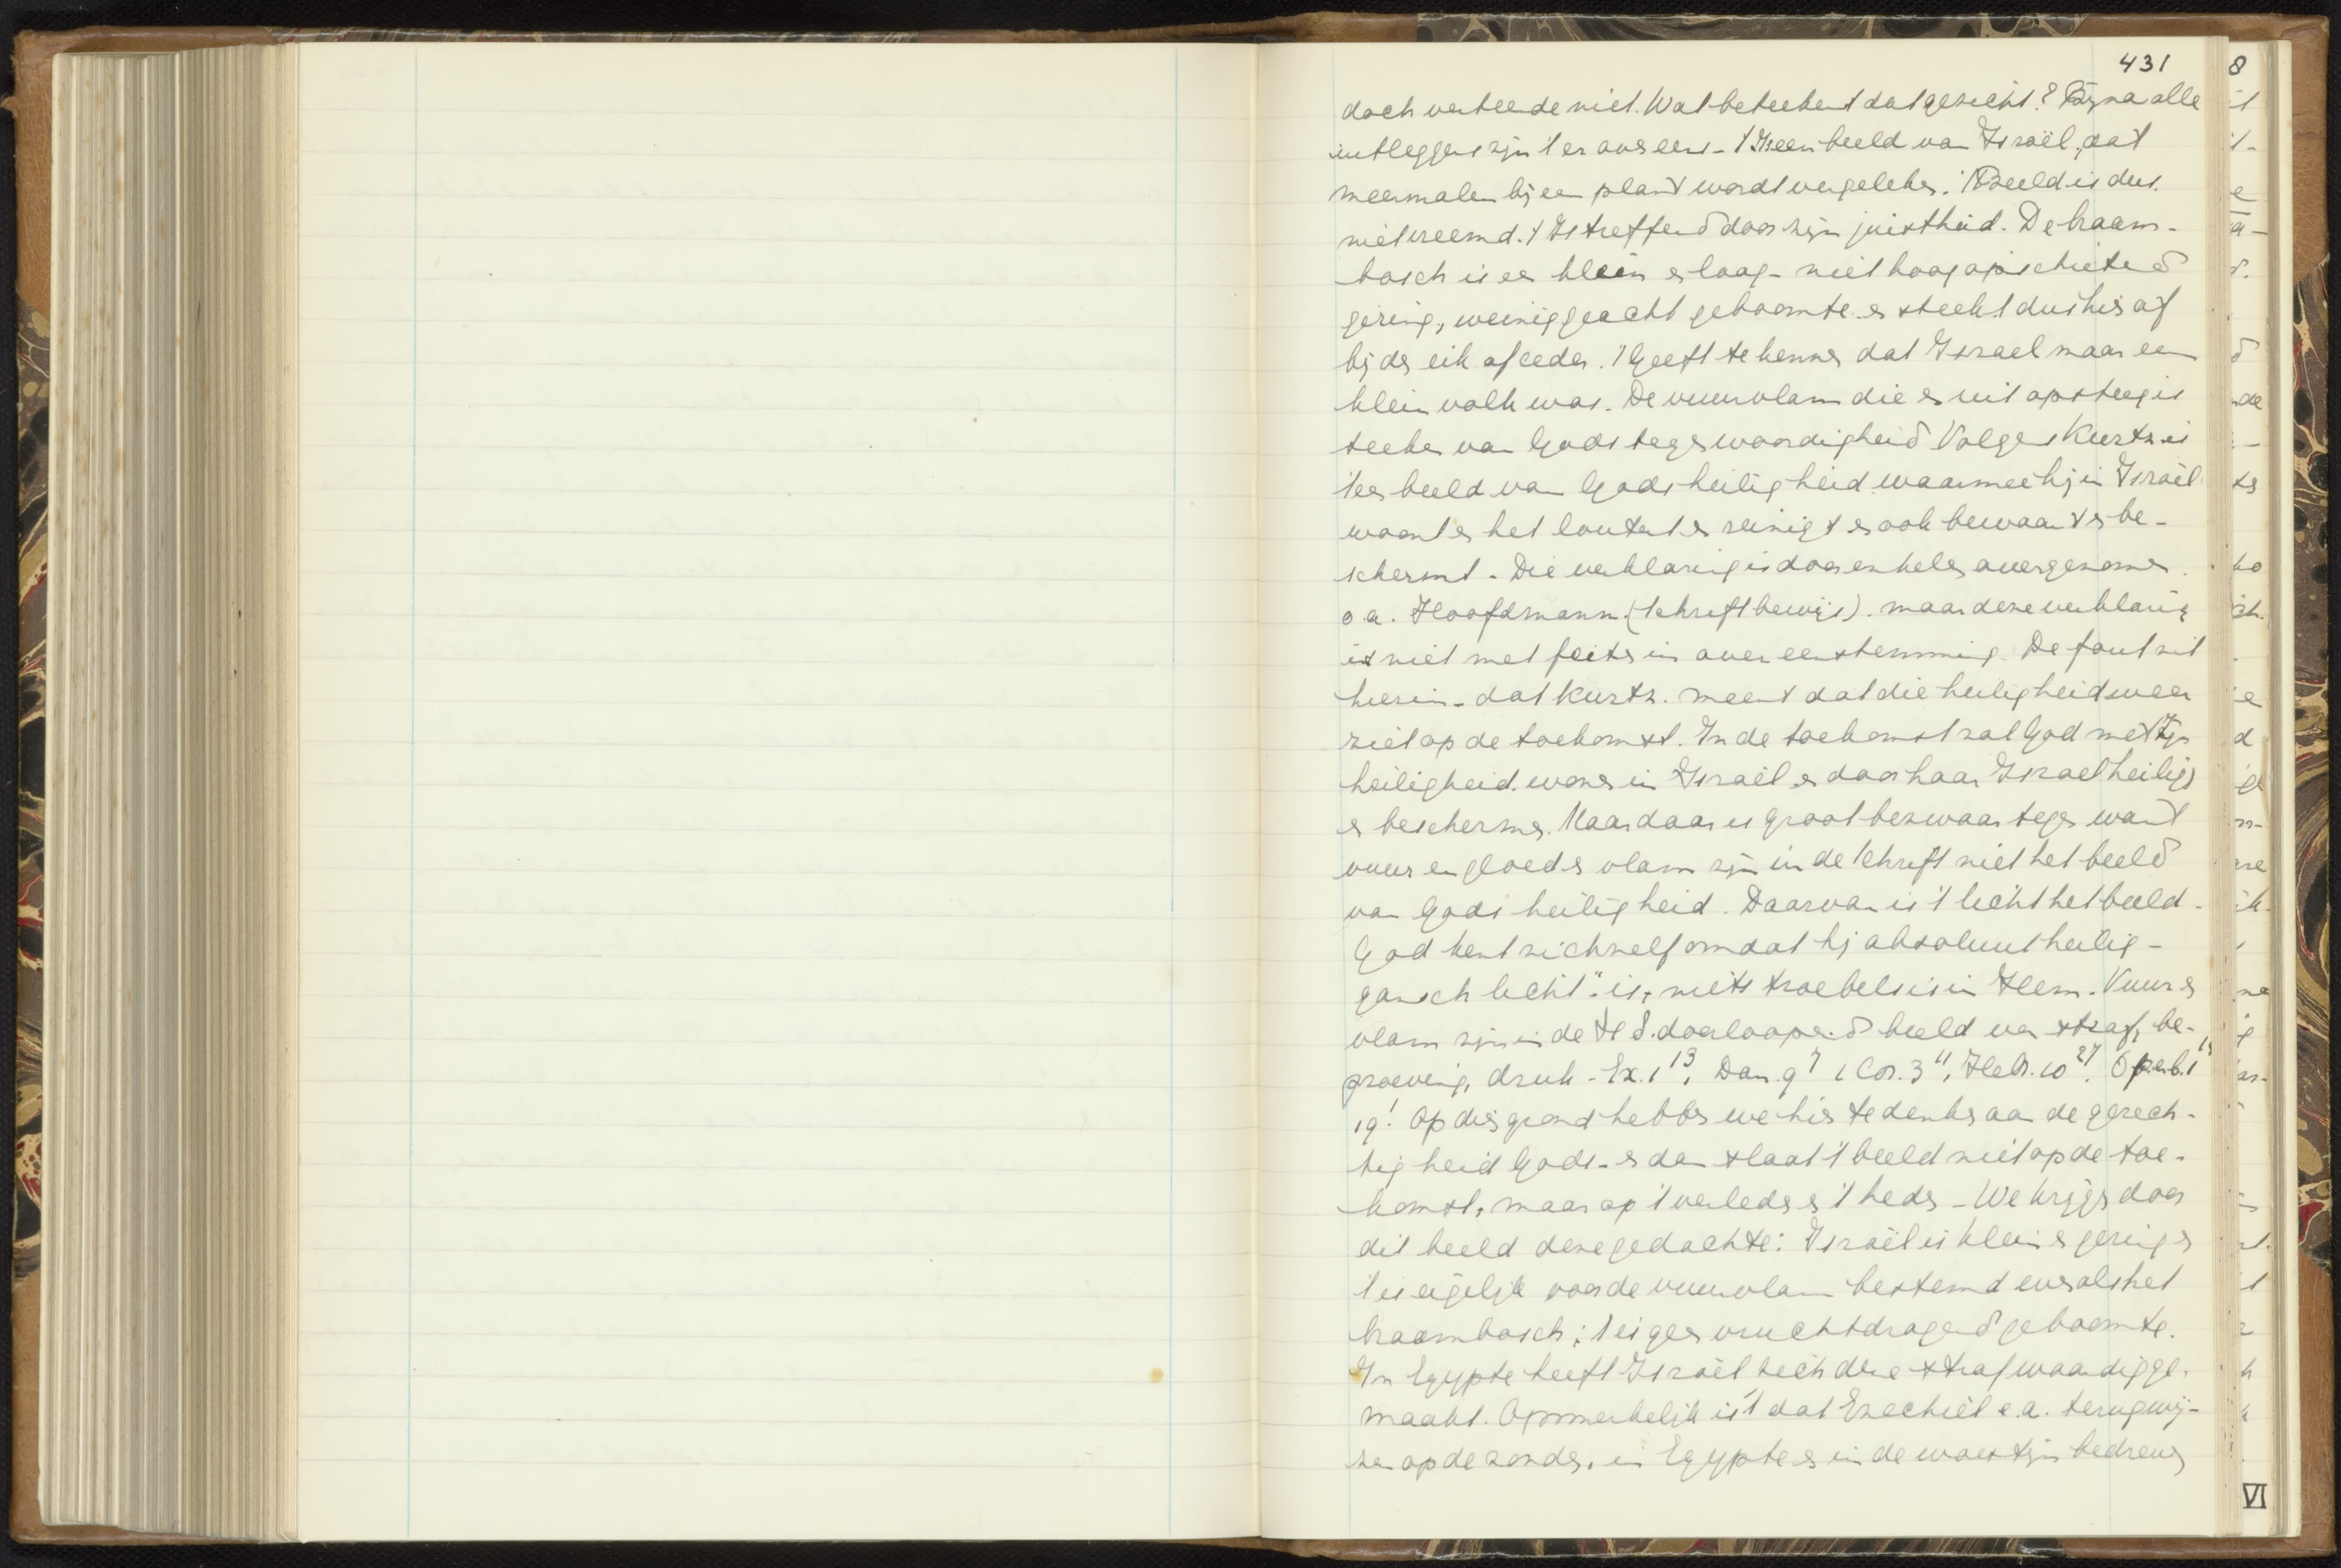 431
doch verteerde niet. Wat beteekent dat gezicht? Bijna alle
uitleggers zijn 't er over eens - 't Is een beeld van Israël, dat
meermalen bij een plant wordt vergeleken. 't Beeld is dus
niet vreemd. 't Is treffend door zijn juistheid. De braam-
bosch is een klein en laag - niet hoog opschietend
gering, weinig geacht geboomte en steekt dus hier af
bij den eik of ceder. 't Geeft te kennen dat Israel maar een
klein volk was. De vuurvlam die er uit opsteeg is
teeken van Gods tegenwoordigheid Volgens Kurtz is
't een beeld van Gods heiligheid waarmee hij in Israël
woont en het loutert en reinigt en ook bewaart en be-
schermt. Die verklaring is door enkelen overgenomen.
o.a. Hoofdmann (Schriftbewijs). maar deze verklaring
is niet met feiten in overeenstemming. De fout zit
hierin - dat Kurtz. meent dat die heiligheid weer
ziet op de toekomst. In de toekomst zal God met Zijn
heiligheid wonen in Israël en door haar Israel heiligen
en beschermen. Maar daar is groot bezwaar tegen want
vuur en gloed en vlam zijn in de Schrift niet het beeld
van Gods heiligheid. Daarvan is 't licht het beeld.
God kent zichzelf omdat hij absoluut heilig -
gansch licht" is, niets troebels is in Hem. Vuur en
vlam zijn in de H S. doorloopend beeld van straf, be-
proeving, druk - Ex. 1 13, Dan. 9 7 1 Cor. 3 11, Hebr. 10 27. Openb. 1 14
19! Op dien grond hebben we hier te denken aan de gerech-
tigheid Gods - en dan slaat 't beeld niet op de toe-
komst, maar op 't verleden en 't heden - We krijgen door
dit beeld deze gedachte: Israël is klein en gering en
't is eigelijk voor de vuurvlam bestemd evenals het
braambosch; 't is geen vruchtdragend geboomte.
In Egypte heeft Israël zich deze strafwaardig ge-
maakt. Opmerkelijk is 't dat Ezechiël e.a. terugwij-
zen op de zonden, in Egypte en in de woestijn bedreven
VI